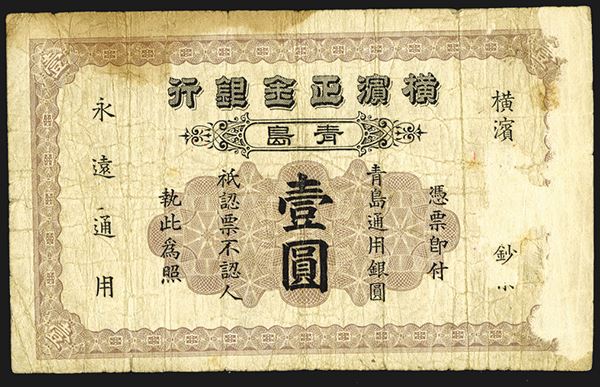 橫濱正金銀行
青島
橫濱 鈔
憑票即付
青島通用銀圓
壹圓
祇認票不認人
執此爲照
永遠通用